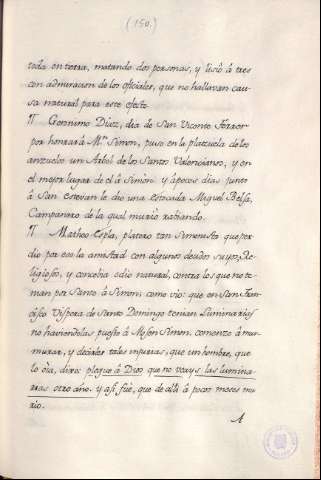 (150.)
toda entera, matando dos personas, y lisió à tres
con admiracion de los oficiales, que no hallavan cau-
sa natural para este efeto
¶ Geronimo Diez, dia de San Vicente Ferrer
por honrar à Mⁿ Simon, puso en la plazuela de los
anzuelos un Arbol de los Santos Valencianos, y en
el mejor lugar de el à Simon: y à pocos dias junto
à San Estevan le dio una estocada Miguel Belsa,
Campanero de la qual murio rabiando.
¶ Matheo Espla, platero tan Simonista que per-
dio por eso la amistad con algunos deudos suyos, Re-
ligiosos, y concebia odio natural, contra los que no te-
nian por Santo à Simon; como vio: que en San Fran-
cisco Vispera de Santo Domingo tenian Luminarias
no haviendolas puesto à Mosen Simon. comenzo à mur-
murar, y decirles tales injurias, que un hombre, que
lo oìa, dixo: plegue à Dios que no veays las lumina-
rias otro año. y assi fue, que de allì à pocos meses mu-
rio.
A